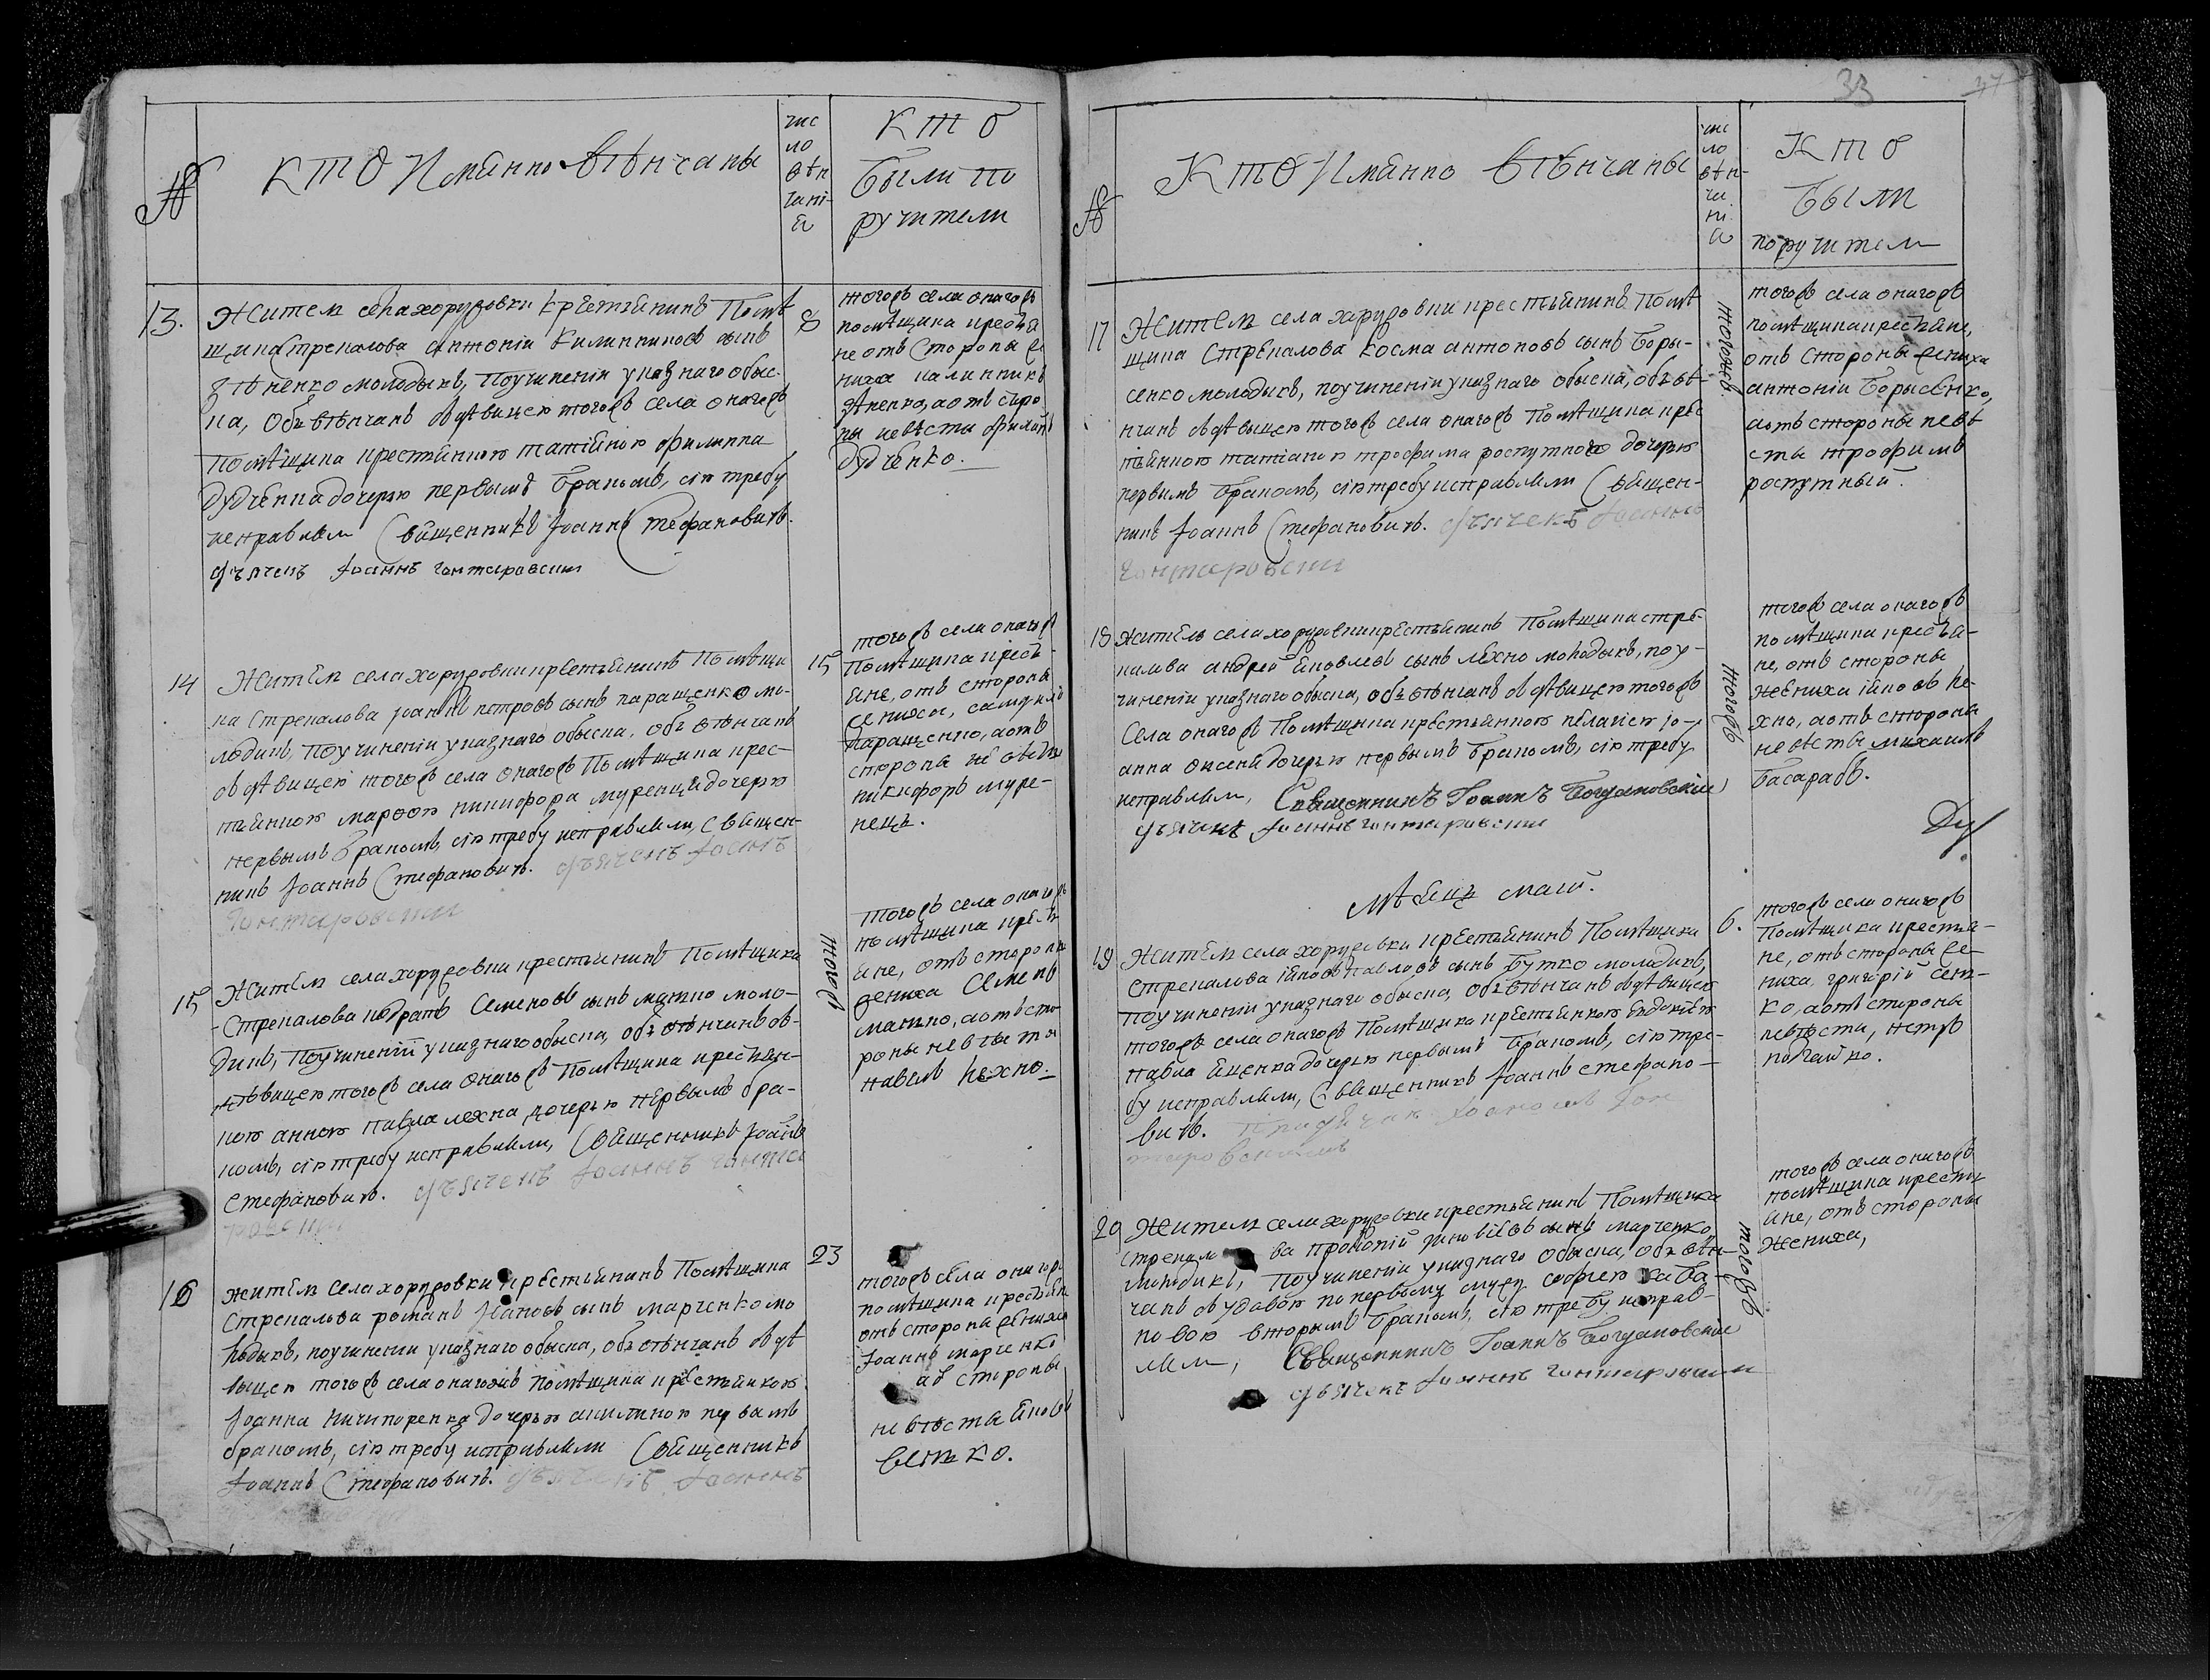 №
КТО Имянно вѣнчаны
чис
ло
вѣн
чані-
я
КТО
были по
ручители
13.
Житель села хорудовки крестьянинъ Помѣ
щика стрекалова антоній Калинниковъ сынъ
зѣненко молодикъ, поучиненіи указнаго обыс-
ка, обвѣнчанъ здѣвицею тогожъ села онагожъ
Помѣщика крестьянкою татіяною филиппа
дудченка дочерью первымъ бракомъ, сію требу
исправляли Священникъ Іоаннъ Стефановичъ.
дьячекъ Іоаннъ гонтаровски
8
тогожъ села онагожъ
помѣщика крестья
не отъ Стороны же
ниха калинникъ
зѣненко, аотъ сторо
ны невѣсты филиппъ
дудченко.
14
Житель села хорудовки крестьянинъ Помѣщи
ка Стрекалова іоаннъ петровъ сынъ паращенко мо-
лодикъ, поучиненіи указнаго обыска, обвѣнчанъ
здѣвицею тогожъ села онагожъ Помѣщика крес-
тьянкою марѳою никифора муренця дочерью
первымъ бракомъ, сію требу исправляли, Священ-
никъ Іоаннъ Стефановичъ. дьячекъ Іоаннъ
Гонтаровски
15
тогожъ села онагожъ
Помѣщика кресть-
яне, отъ стороны
жениха, самуилъ
паращенко, аотъ
стороны невѣсты
никифоръ муре-
нецъ.
15
Житель села хорудовки крестьянинъ Помѣщика
Стрекалова Семеновъ сынъ махно моло-
дикъ, Поучиненіи указнаго обыска, обвѣнчанъ з-
дѣвицею тогожъ села онагожъ помѣщика крестьян-
кою анною павла лехна дочерью первымъ бра-
комъ, сію требу исправляли, Священникъ Іоаннъ
Стефановичъ. дьячекъ Іоаннъ гонта
ровски
тогожъ
тогожъ села онагожъ
помѣщика кресть
яне, отъ стороны
жениха Семенъ
махно, аотъ сто
роны невѣсты
павелъ лехно.
16
житель села хорудовки крестьянинъ Помѣщика
стрекалова романъ Іоановъ сынъ марченко мо
лодикъ, поучиненіи указнаго обыска, обвѣнчанъ здѣ
вицею тогожъ села онагожъ помѣщика крестьянкою
Іоанна Ничипоренка дочерью акилиною первымъ
бракомъ, сію требу исправляли Священникъ
Іоаннъ Стефановичъ. дьячекъ Іоаннъ
23
тогожъ села онагожъ
помѣщика крестьяне
отъ стороны жениха
Іоаннъ марченко
аѿ стороны
невѣсты яковъ
ветько.
33
№
КТО Имянно вѣнчаны
чис
ло
вѣн-
ча
ні
я
КТО
были
поручители
17
Житель села харудовки крестьянинъ Помѣ
щика Стрекалова косма антоновъ сынъ боры-
сенко молодикъ, поучиненіи указнаго обыска, обвѣ-
нчанъ здѣвицею тогожъ села онагожъ Помѣщика крес
тьянкою татіаною трофима роспутного дочерью
первымъ бракомъ, сію требу исправляли Священ-
никъ Іоаннъ Стефановичъ. дьячекъ Іоаннъ
гонтаровски
тогожъ
тогожъ села онагожъ
помѣщика крестьяне,
отъ стороны жениха
антоній борысенко,
аотъ стороны невѣ
сты трофимъ
роспутный.
18
Житель села хорудовки крестьянинъ Помѣщика стре-
калова андрей яковлевъ сынъ лехно молодикъ, поу-
чиненіи указнаго обыска, обвѣнчанъ здѣвицею тогожъ
Села онагожъ Помѣщика крестьянкою пелагіею іо-
анна дочерью первымъ бракомъ, сію требу
исправляли, Священникъ Іоаннъ Богдановскій
дьячекъ Іоаннъ гонтаровски
тогожъ
тогожъ села онагожъ
помѣщика крестья-
не, отъ стороны
жениха яковъ ле-
хно, аотъ стороны
невѣсты михаилъ
басарабъ.
Ду
мѣсяцъ маій.
19
Житель села хорудовки крестьянинъ Помѣщика
стрекалова яковъ павловъ сынъ бутко молодикъ,
поучиненіи указнаго обыска, обвѣнчанъ здѣвицею
тогожъ села онагожъ Помѣщика крестьянкою Евдокіею
павла яценка дочерью первымъ бракомъ, сію тре-
бу исправляли, Священникъ Іоаннъ стефано-
вичъ.
таровскимъ
6.
тогожъ села онагожъ
Помѣщика крестья-
не, отъ стороны же-
ниха, григорій сет-
ко, аотъ стороны
невѣсты, петръ
почайко.
20
Житель села харудовки крестьянинъ Помѣщика
стрекалова прокопій зиновіевъ сынъ марченко
молодикъ, Поучиненіи указнаго обыска, обвѣн-
чанъ здовою по первому мужу софіею каба-
новою вторымъ бракомъ, сію требу исправ-
ляли, Священникъ Іоаннъ Богдановскій
дьячекъ Іоаннъ гонтаровски
тогожъ
тогожъ села онагожъ
помѣщика кресть
яне, отъ стороны
жениха,